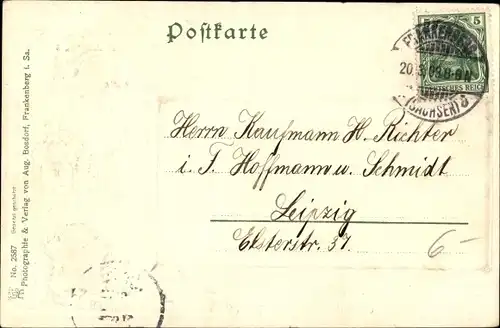 Postkarte
5 5
FRANKENBERG
20. 3. 03. 8-9 N.
(SACHSEN)
DEUTSCHES REICH
Herrn Kaufmann H. Richter
i. F. Hoffmann u. Schmidt
Leipzig
Elsterstr. 37.
6-
No. 2587 Gesetzl. geschützt
Photographie & Verlag von Aug. Bosdorf, Frankenberg i. Sa.